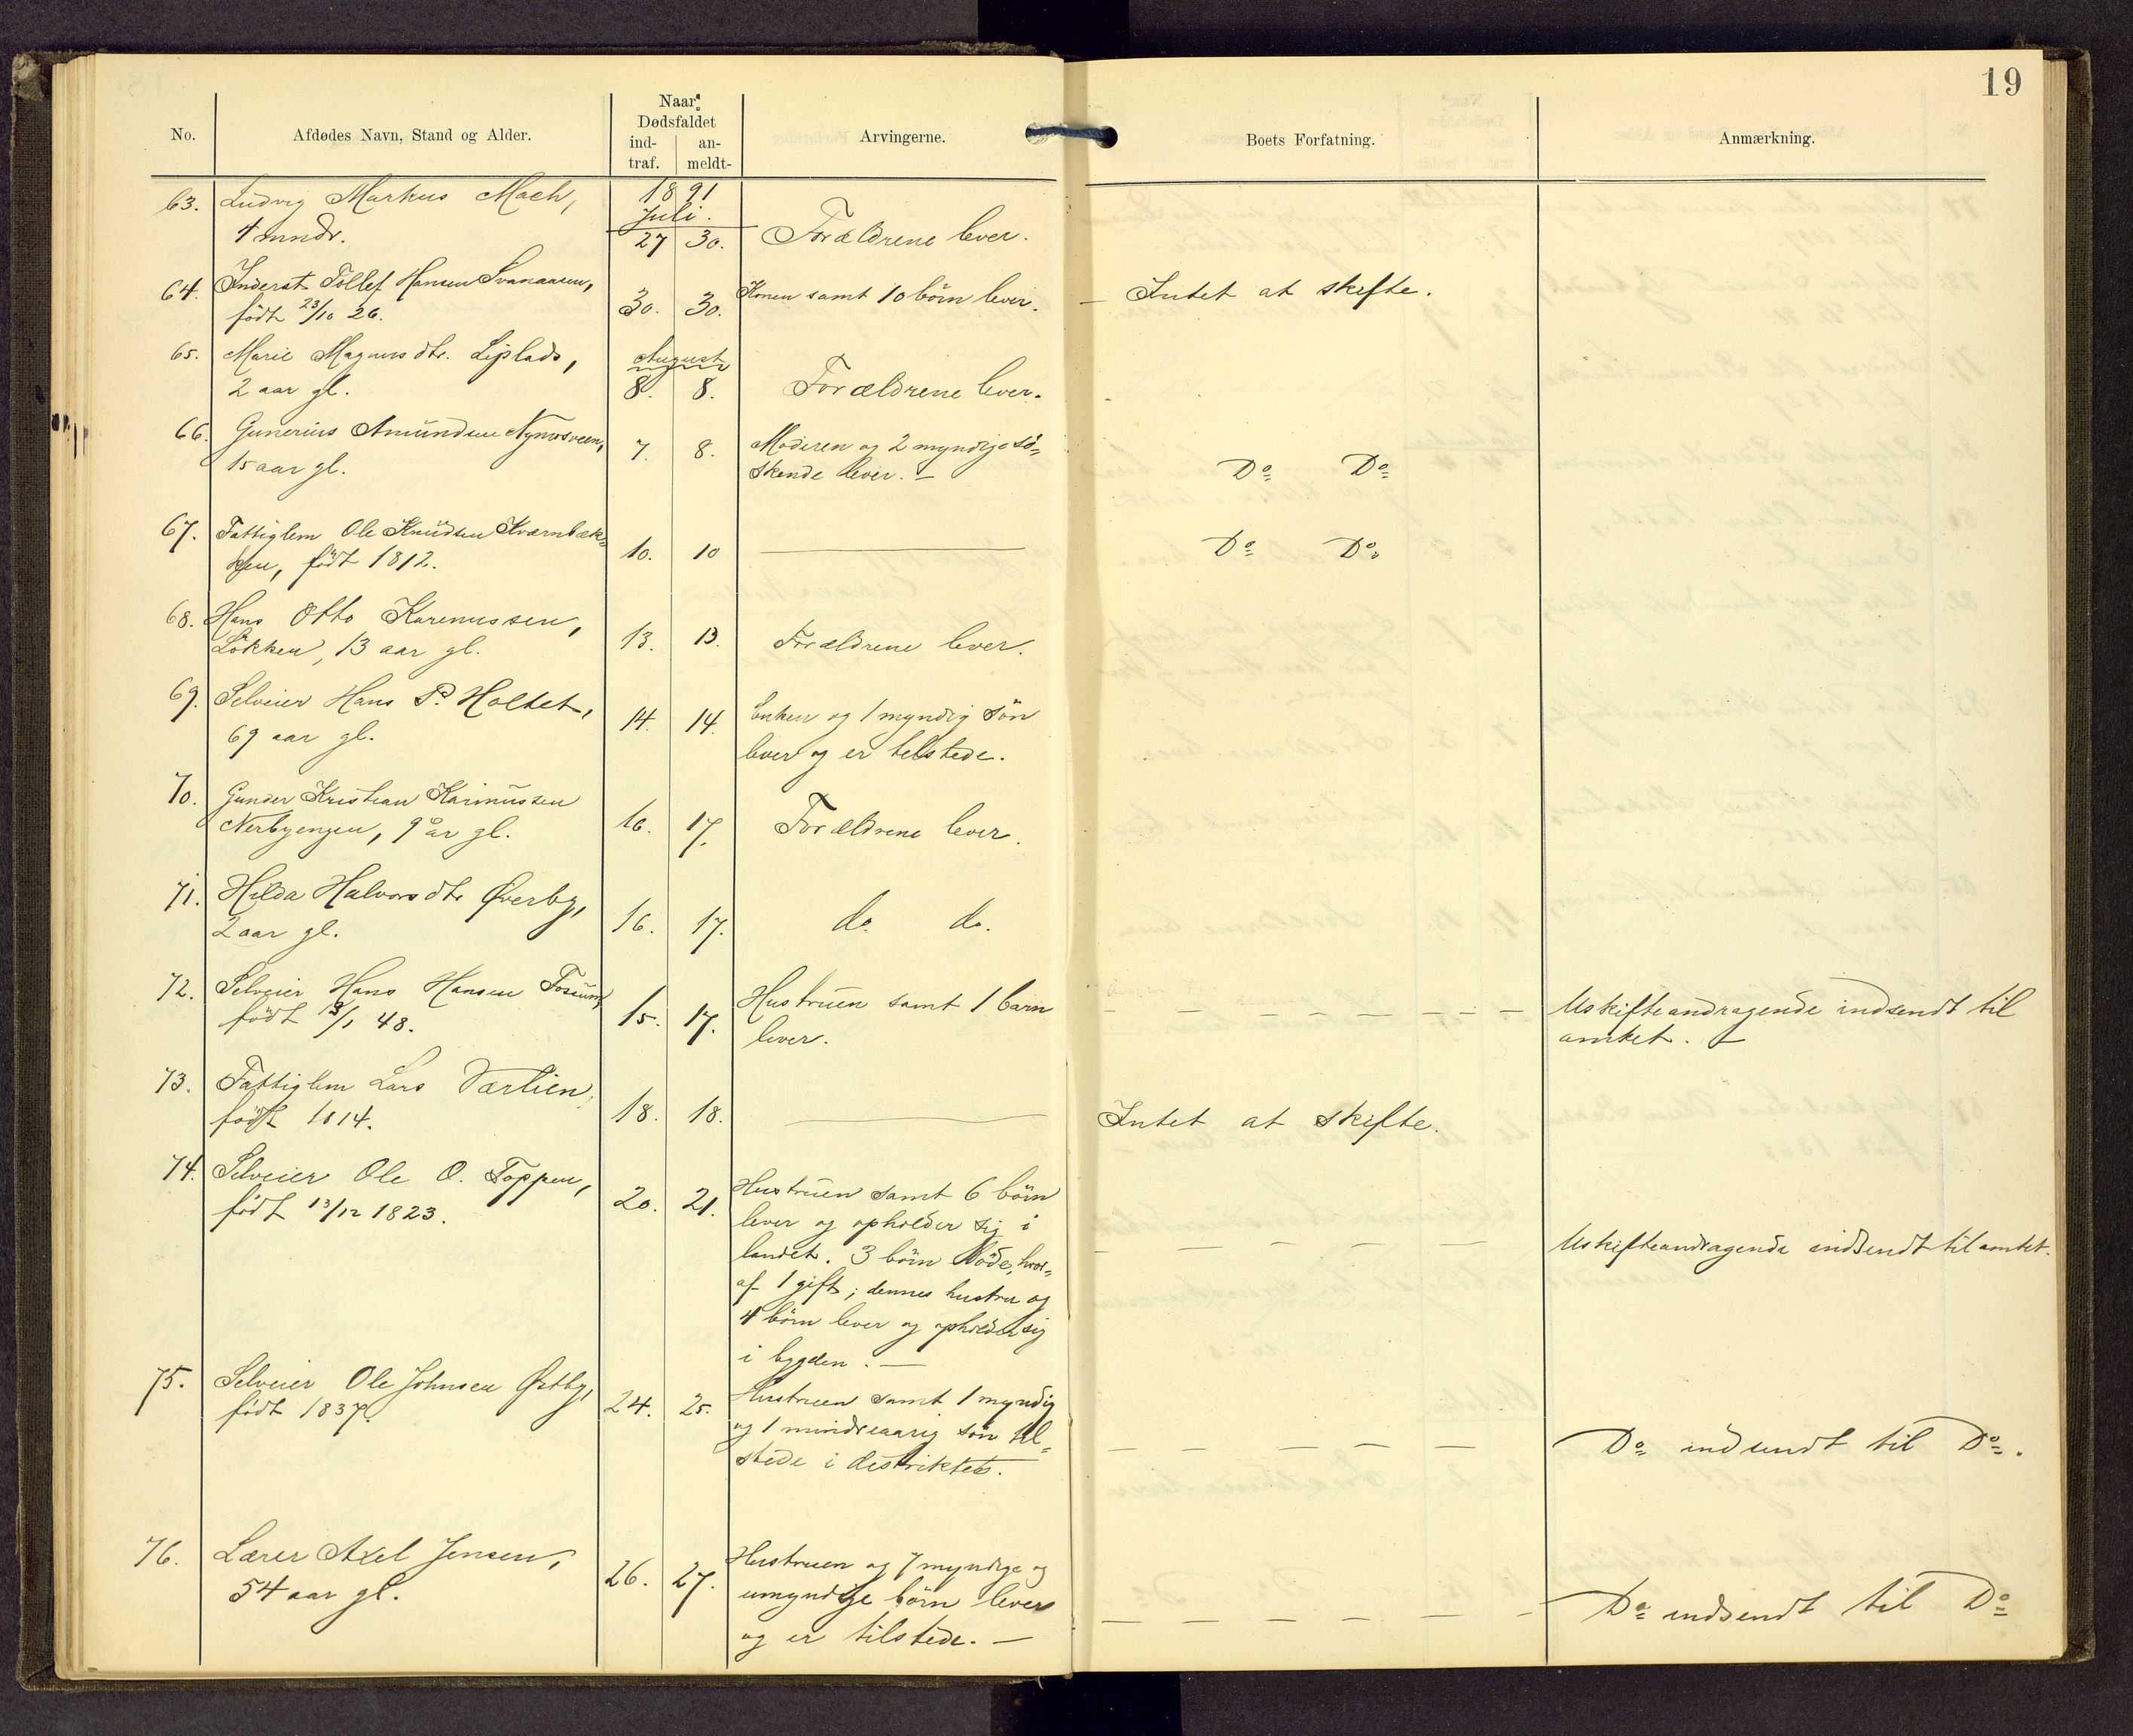 19
No.
Afdødes Navn, Stand og Alder.
Naar
Dødsfaldet
ind-
traf.
an-
meldt-
Arvingerne.
Boets Forfatning.
Anmærkning.
1891
Juli.
63. Ludvig Markus Moch,
4 mndr.
27 30. Forældrene lever.
64. Inderst Tollef Hansen Svenaasen,
født 23/10 26.
30. 30. Konen samt 10 börn lever. — Intet at skifte.
65. Marie Magnusdtr. Liplads,
2 aar gl.
August
8. 8. Forældrene lever.
66. Gunerius Amundsen Nymosveen,
15 aar gl.
7. 8. Moderen og 2 myndige sö-
skende lever. — Do Do
67. Fattiglem Ole Knudsen Kværnbæk-
ken, födt 1812.
10. 10 — Do Do
68. Hans Otto Karenussen,
Løkken, 13 aar gl.
13. 13. Forældrene lever.
69. Selveier Hans P. Holtet,
69 aar gl.
14. 14. Enken og 1 myndig sön
lever og er telstede.
70. Gunder Kristian Karinussen
Nerbyengen, 9 år gl.
16. 17. Forældrene lever.
71. Hilda Halvorsdtr Øverby,
2 aar gl.
16. 17. do. do.
72. Selveier Hans Hansen Fosum,
födt /1 48.
15. 17. Hustruen samt 1 barn
lever. — — — — — — — — Uskifteandragende indsendt til
amtet. —
73. Fattiglem Lars Værlien,
födt 1814.
18. 18. — Intet at skifte.
74. Selveier Ole O. Toppen,
födt 13/12 1823.
20. 21. Hustruen samt 6 börn
lever og opholder sig i
landet. 3 börn döde, hvor-
af 1 gift; dennes hustru og
4 börn lever og opholder sig
i bygden. —
— — — — — Uskifteandragende indsendt til amtet.
75. Selveier Ole Johnsen Østby,
födt 1837.
24. 25. Hustruen samt 1 myndig
og 1 mindreaarig sön til-
stede i distriktet.
— — — — — — Do indsendt til Do.
76. Lærer Axel Jensen,
54 aar gl.
26. 27. Hustruen og 7 myndige og
umyndige börn lever
og er tilstede. —
— — — — — — — Do indsendt til Do